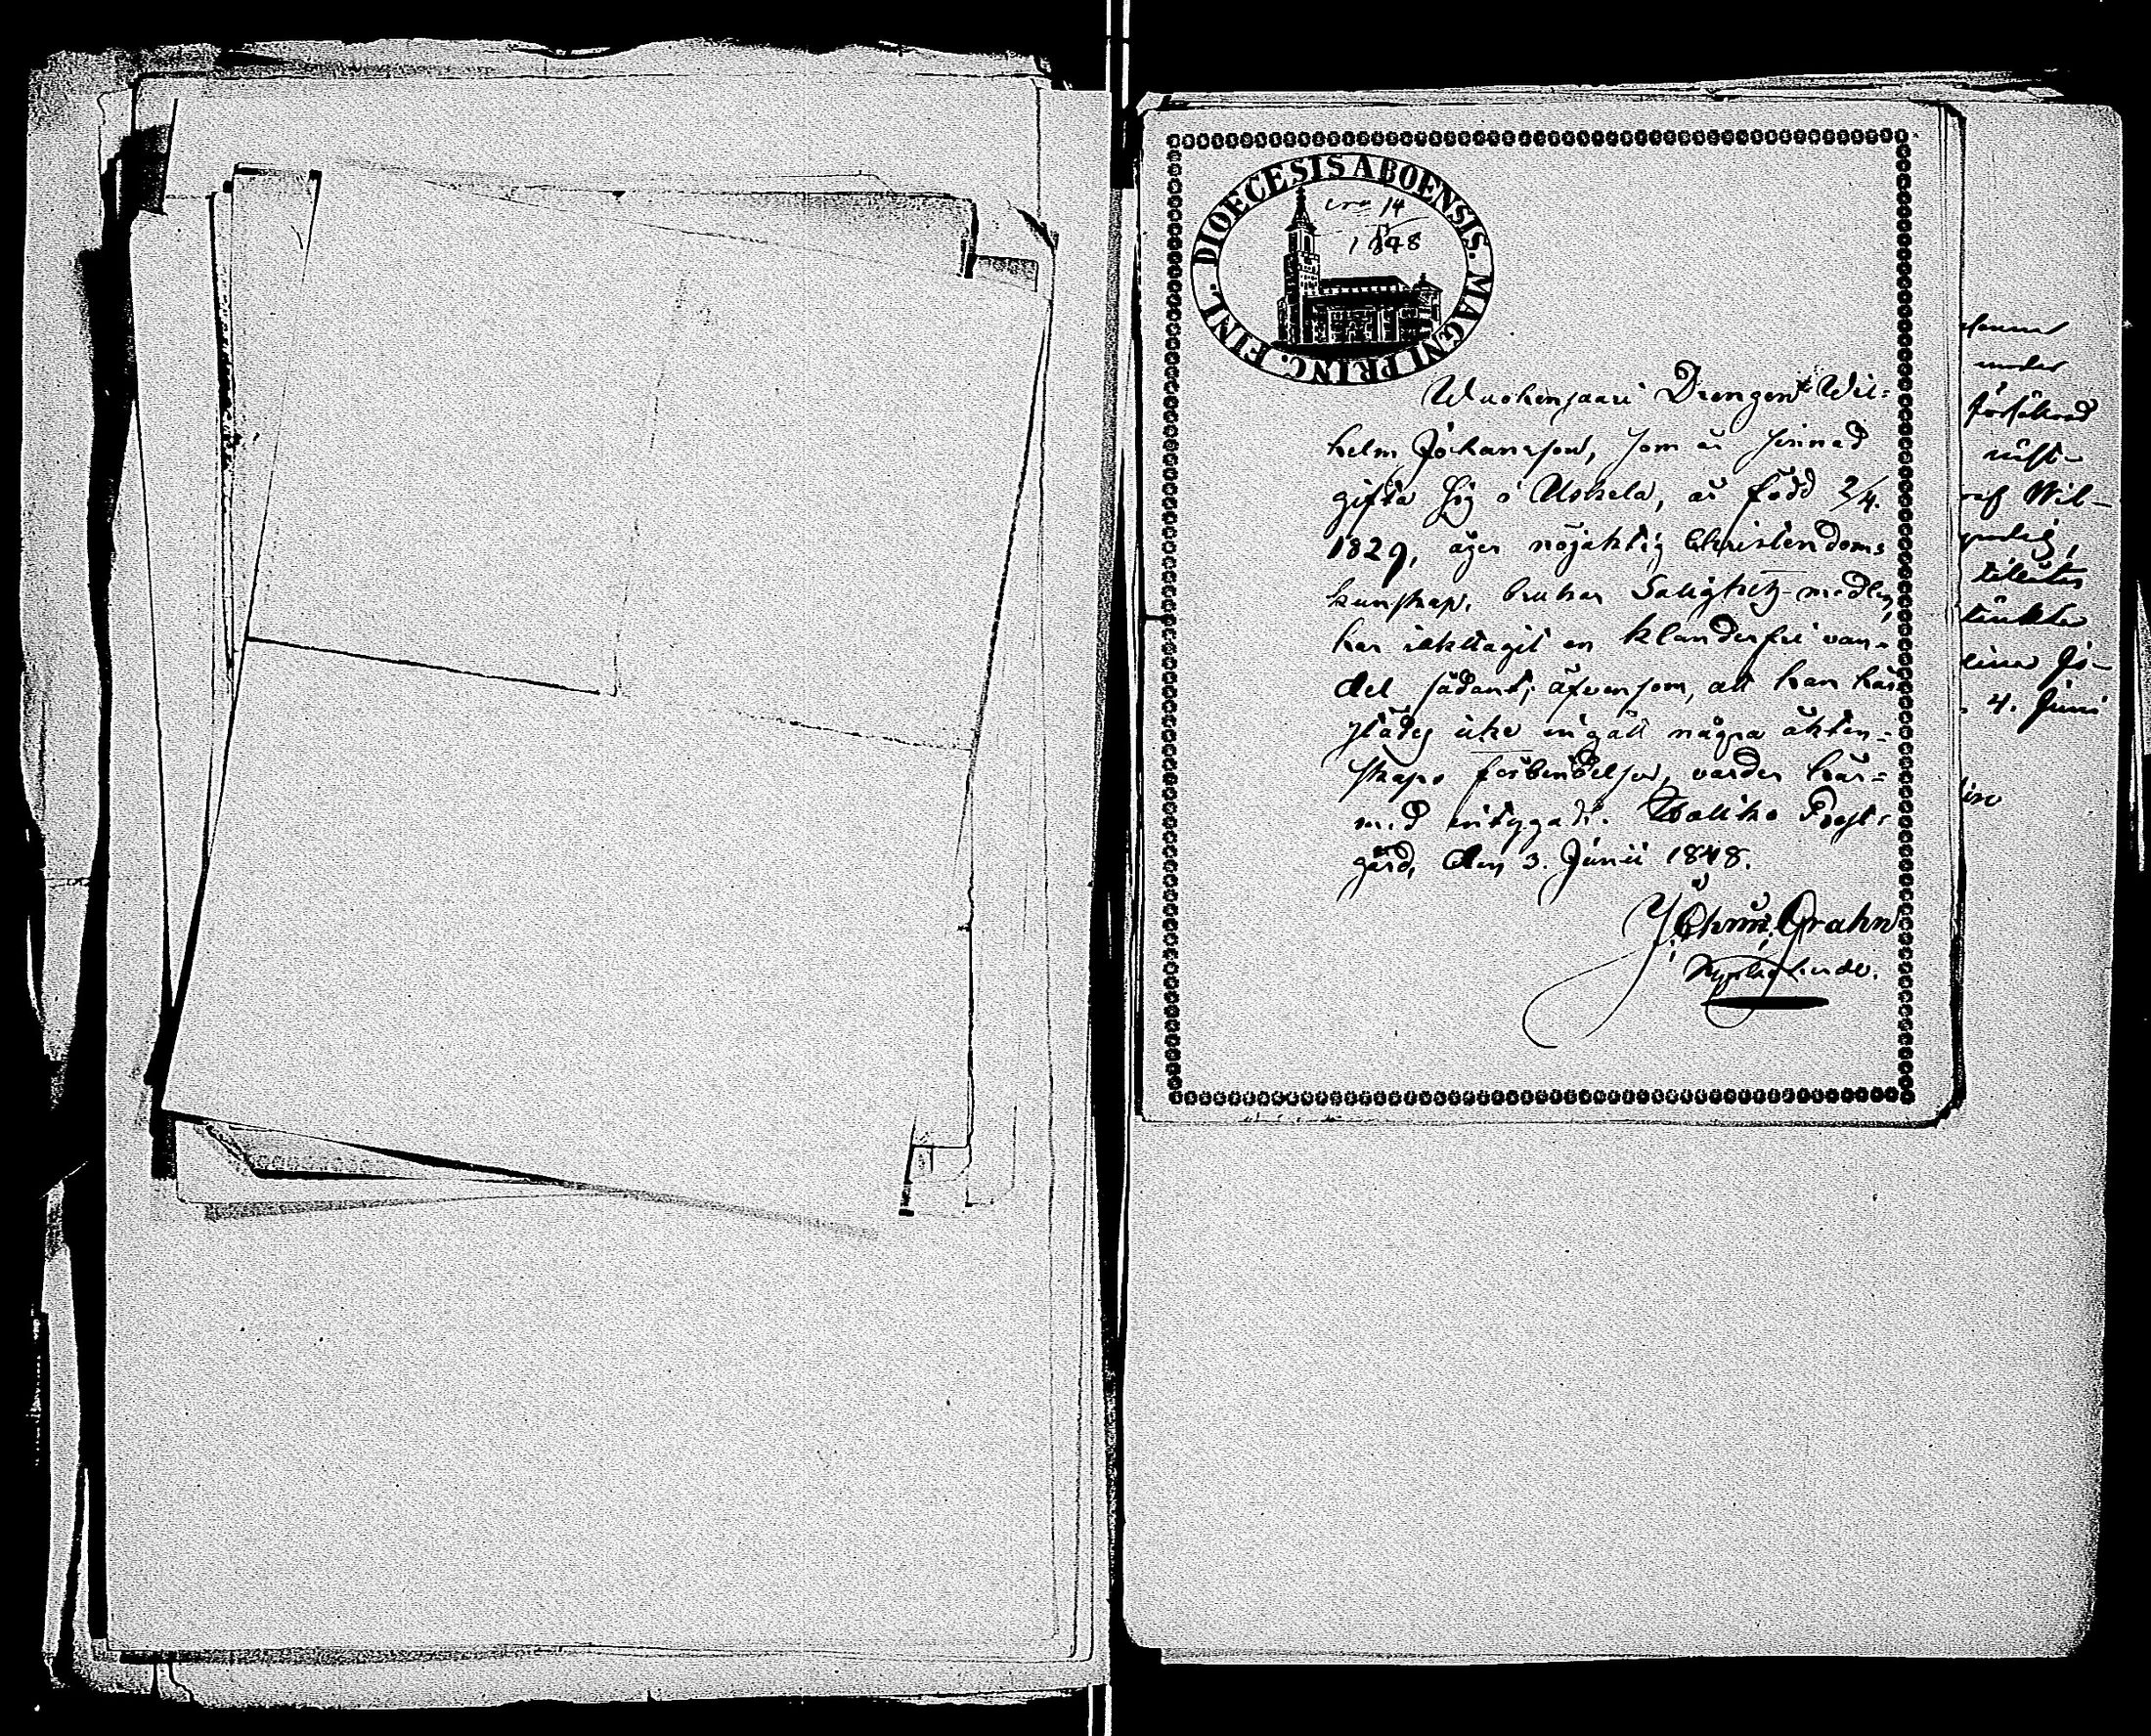 DIOECESIS ABOENSIS. MAGNI PRINC. FINL.
14
1848
Drengen Wil=
helm Johansson, som är sinnad
gifta sig i Uskela, är född 2/4.
1829, äger nöjaktig Christendoms
kunskap, brukar Salighets-medlen,
har iakttagit en klanderfri van-
del sådant, äfvensom, att han här-
städes icke ingått några äkten-
skaps förbindelser, varder här=
med intygadt. Halikko Prost-
gård, den 3. Junii 1848.
Grahn
Kyrkoherde.
under
försäkrad
Wil-
Jo-
4. Juni